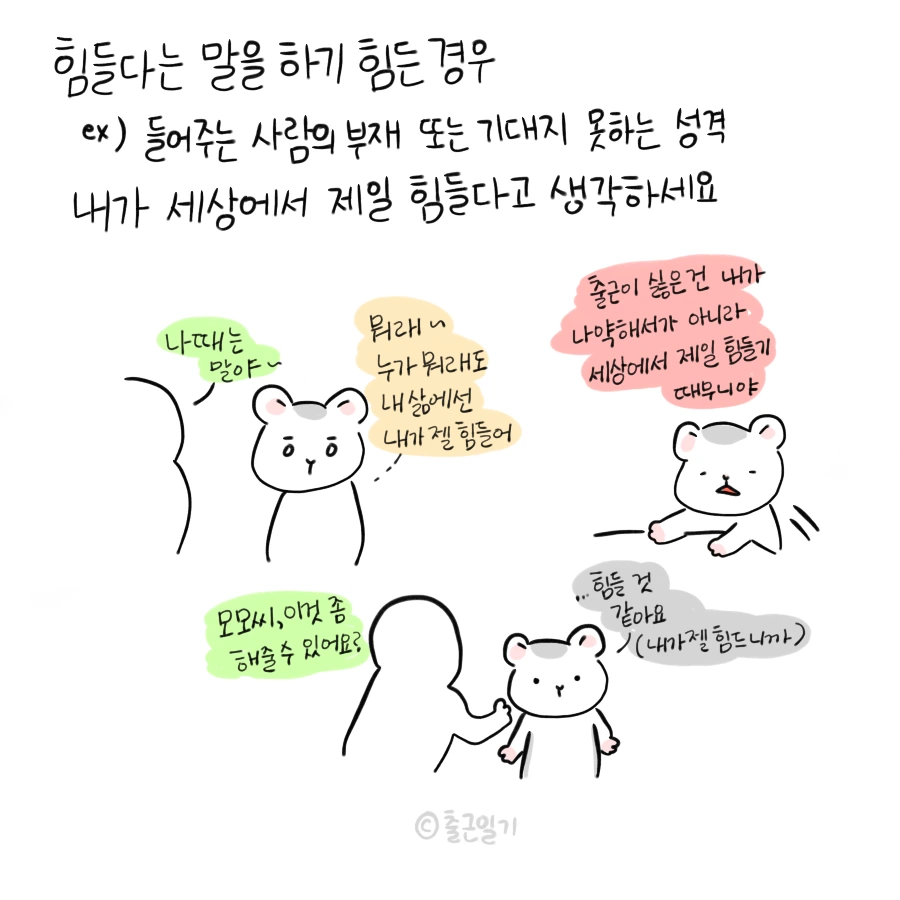 힘들다는 말을 하기 힘든 경우
ex) 들어주는 사람의 부재 또는 기대지 못하는 성격
내가 세상에서 제일 힘들다고 생각하세요
나때는
말야~
뭐래~
누가 뭐래도
내 삶에선
내가 젤 힘들어
출근이 싫은건 내가
나약해서가 아니라
세상에서 제일 힘들기
때무니야
모모씨, 이것 좀
해줄 수 있어요?
...힘들 것
같아요
(내가 젤 힘드니까)
©출근일기